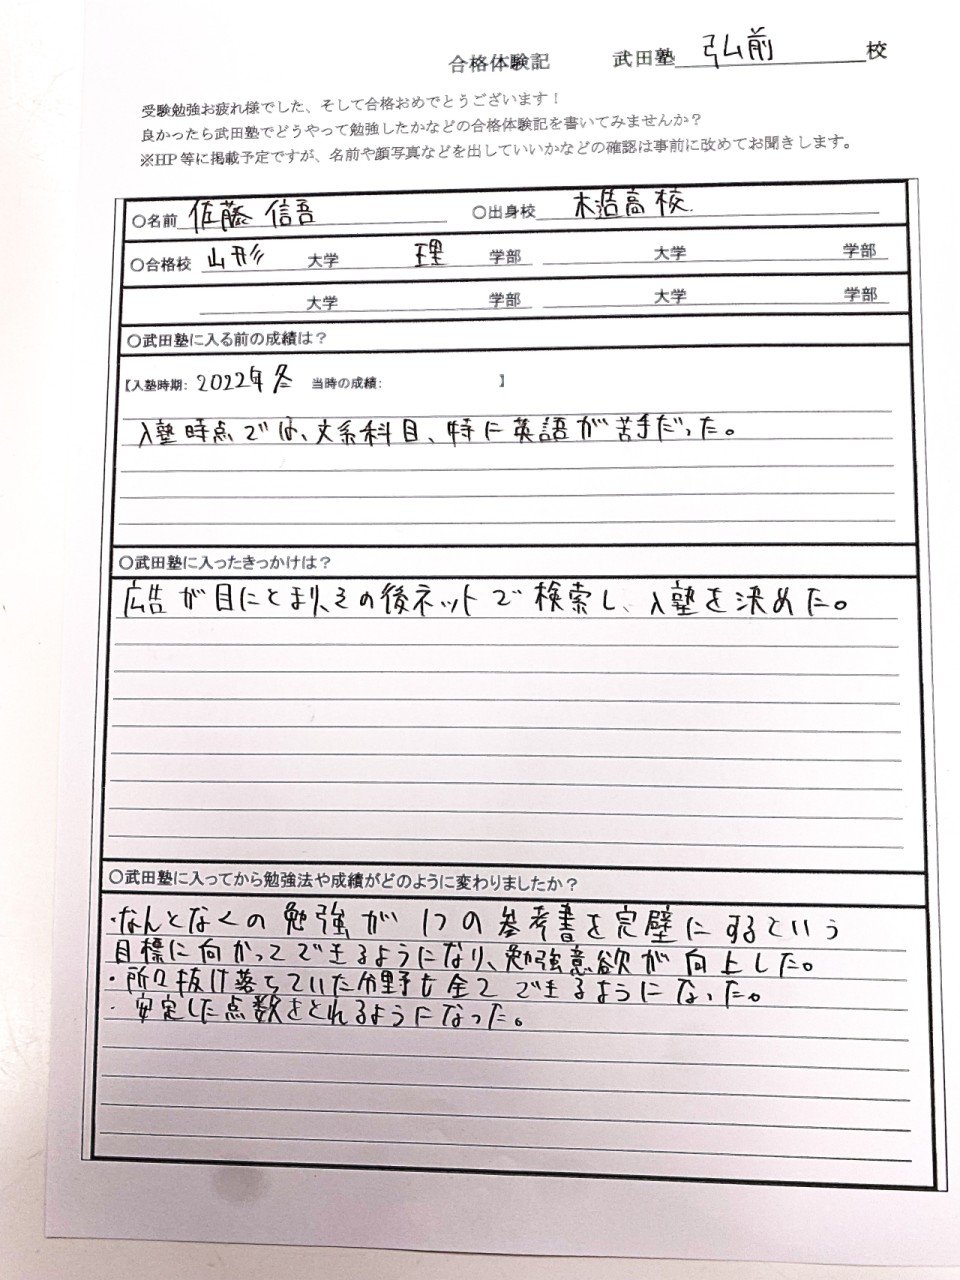 合格体験記 武田塾 弘前 校
受験勉強お疲れ様でした、そして合格おめでとうございます！
良かったら武田塾でどうやって勉強したかなどの合格体験記を書いてみませんか？
※HP等に掲載予定ですが、名前や顔写真などを出していいかなどの確認は事前に改めてお聞きします。
○名前 佐藤 信吾 ○出身校 木造高校.
○合格校 山形 大学 理 学部 大学 学部
大学 学部 大学 学部
○武田塾に入る前の成績は？
【入塾時期: 2022年冬 当時の成績: 】
入塾時点では、文系科目、特に英語が苦手だった。
○武田塾に入ったきっかけは？
広告が目にとまり、その後ネットで検索し、入塾を決めた。
○武田塾に入ってから勉強法や成績がどのように変わりましたか？
・なんとなくの勉強が1つの参考書を完璧にするという
目標に向かってできるようになり、勉強意欲が向上した。
・所々抜け落ちていた分野も全てできるようになった。
・安定した点数をとれるようになった。